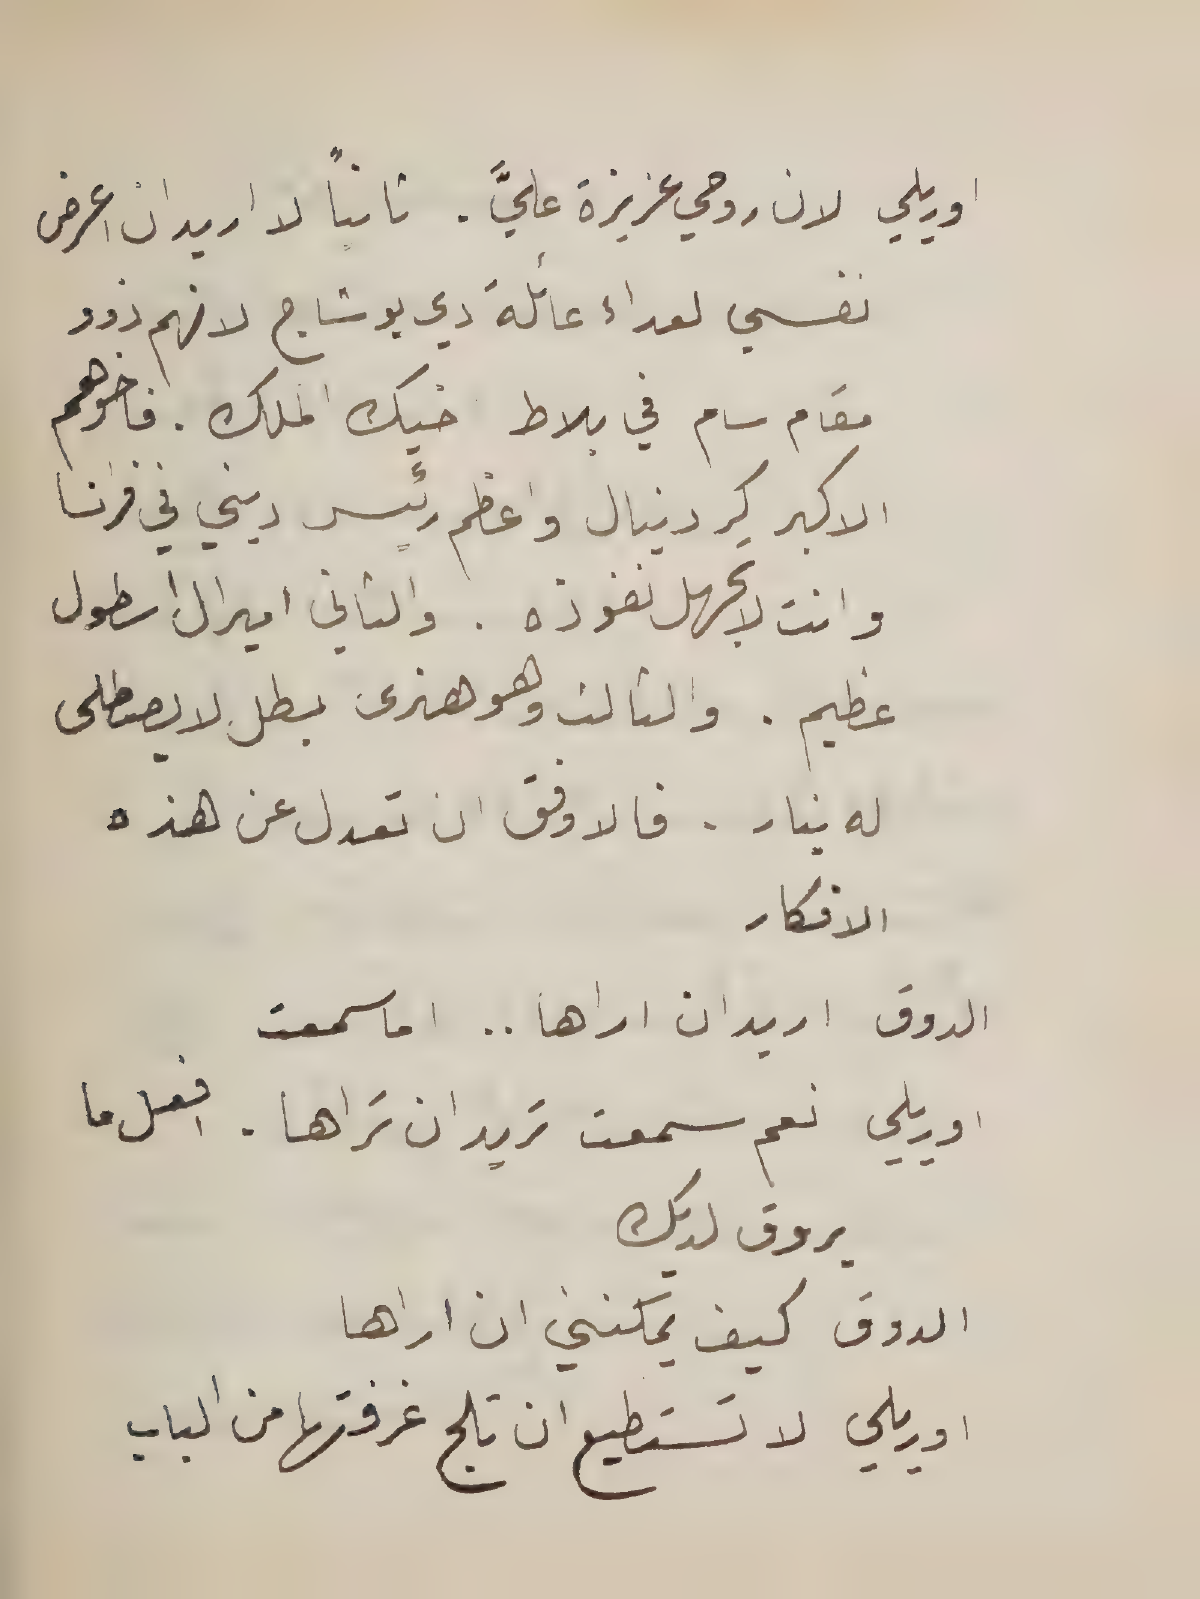 اوريلي لان روحي عزيزة عليَّ . ثانياً لا اريد ان اعرض
نفسي لعداء عائلة دي بوشاج لانهم ذوو
مقام سام في بلاط اخيك الملك . فاخوهم
الاكبر كردينال واعظم رئيس ديني في فرنسا
وانت لا تجهل نفوذه . والثاني اميرال اسطول
عظيم . والثالث وهو هنرى بطل لا يصطلى
له بنار . فالاوفق ان تعدل عن هذه
الافكار
الدوق اريد ان اراها .. اما سمعت
اوريلي نعم سمعت تريد ان تراها . افعل ما
يروق لديك
الدوق كيف يمكنني ان اراها
اوريلي لا تستطيع ان تلج غرفتها من الباب